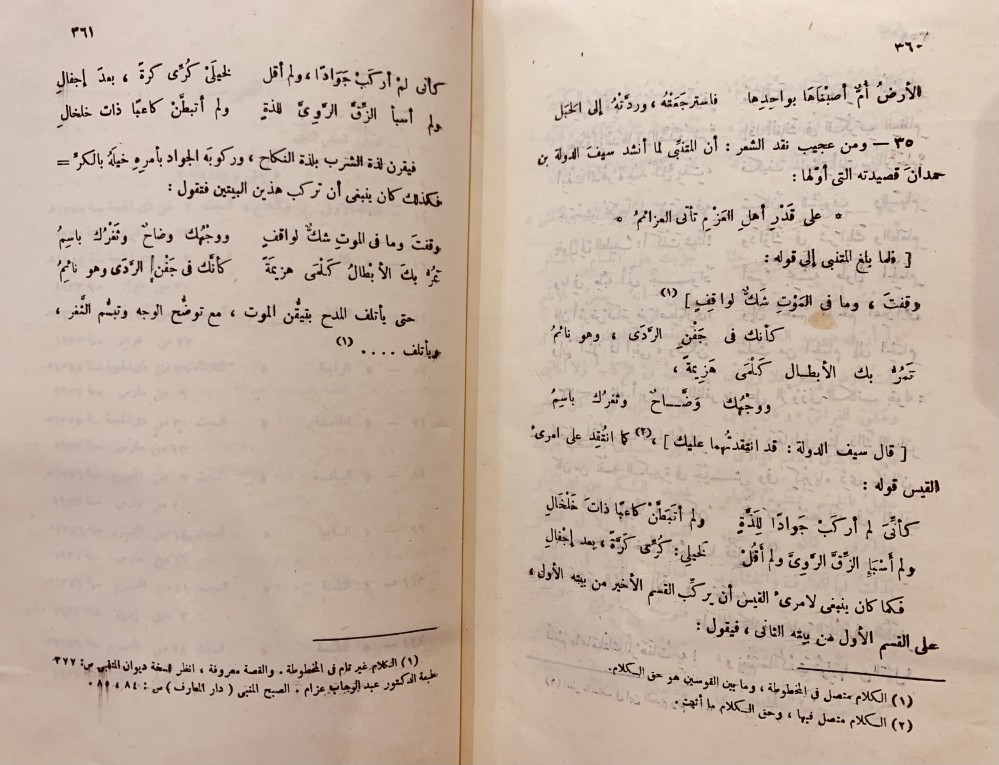 ٣٦٠
الأرضُ أُمٌّ أصبْنَاهَا بواحِدِها فاسترجَعَتْهُ ، وردَّتْهُ إلى الحَبَل
٣٥ — ومن عجيب نقد الشعر : أن المتنبّى لما أنشد سيفَ الدولة بن
حمدانَ قصيدته التى أوّلها :
* على قَدْرِ أهلِ العَزْمِ تأتى العزائمُ *
[ فلما بلغ المتنبى إلى قوله :
وقفتَ ، وما فى المَوْتِ شَكٌّ لواقِفٍ ] (١)
كأنك فى جَفْنِ الرَّدَى ، وهو نائمُ
تَمُرُّ بك الأبطال كَلْمَى هَزِيمَةً ،
ووجْهُك وَضَّاحٌ وثغرُك باسِمُ
[ قال سيف الدولة : قد انتقدتُهما عليك ] ،(٢) كما انتُقِد على امرئ
القيس قوله :
كأنِّىَ لم أركَبْ جَوادًا لِلَذَّةٍ ولم أتَبَطَّنْ كاعبًا ذاتَ خَلْخَالِ
ولم أَسْبَإِ الزِّقَّ الرَّوِىَّ ولم أَقُلْ لخيلِىَ : كُرِّى كَرَّةً ، بعد إجْفالِ
فكما كان ينبغى لامرئ القيس أن يركِّب القسم الأخير من بيته الأول ،
على القسم الأول من بيته الثانى ، فيقول :
(١) الكلام متصل فى المخطوطة ، وما بين القوسين هو حق الكلام .
(٢) الكلام متصل فيها ، وحق الكلام ما أثبت .
٣٦١
كأنى لمْ أركَبْ جَوَادًا ، ولم أقل لخيلَىْ كُرِّى كرةً ، بعدَ إجفالِ
ولم أسبأ الزّقّ الرَّوِىَّ للذةٍ ولم أتبطَّنْ كاعبًا ذات خلخالِ
فيقرن لذة الشرب بلذة النكاح ، وركوبَه الجواد بأمرِهِ خيلَهُ بالكرِّ =
فكذلك كان ينبغى أن تركب هذين البيتين فتقول :
وقفتَ وما فى الموتِ شكٌّ لواقفٍ ووجْهُك وضاحٌ وثَغْرُك باسِمُ
تمرُّ بكَ الأبْطالُ كَلْمَى هزيمةً كأنَّك فى جَفْنِ الرَّدَى وهو نائمُ
حتى يأتلف المدح بتيقُّن الموت ، مع توضُّح الوجه وتبسُّم الثَّغر ،
ويأتلف .... (١)
(١) الكلام غير تام فى المخطوطة . والقصة معروفة ، انظر نسخة ديوان المتنبى ص : ٣٧٧
طبعة الدكتور عبد الوهاب عزام . الصبح المنبى ( دار المعارف ) ص : ٨٤ ، ٨٥ .